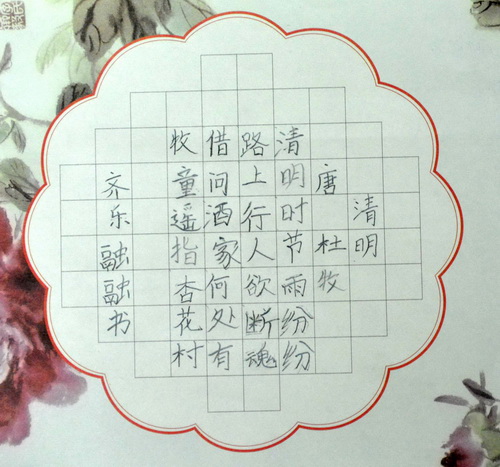 清明
唐杜牧
清明时节雨纷纷
路上行人欲断魂
借问酒家何处有
牧童遥指杏花村
齐乐融融书